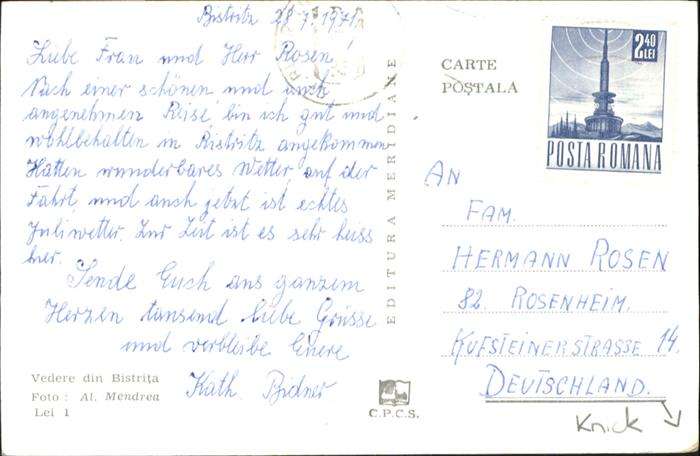 Bistritz 28.7.1971.
Liebe Frau und Herr Rosen!
Nach einer schönen und auch
angenehmen Reise, bin ich gut und
wohlbehalten in Bistritz angekommen
Hatten wunderbares Wetter auf der
Fahrt und auch jetzt ist echtes
Juliwetter. Zur Zeit ist es sehr heiss
hier.
Sende Euch aus ganzem
Herzen tausend liebe Grüsse
und verbleibe Euere
Kath. Bidner
Vedere din Bistrița
Foto: Al. Mendrea
Lei 1
EDITURA MERIDIANE
C.P.C.S.
CARTE
POȘTALĂ
2,40
LEI
POSTA ROMANA
AN
FAM.
HERMANN ROSEN
82. ROSENHEIM.
KUFSTEINERSTRASSE 14.
DEUTSCHLAND.
Knick